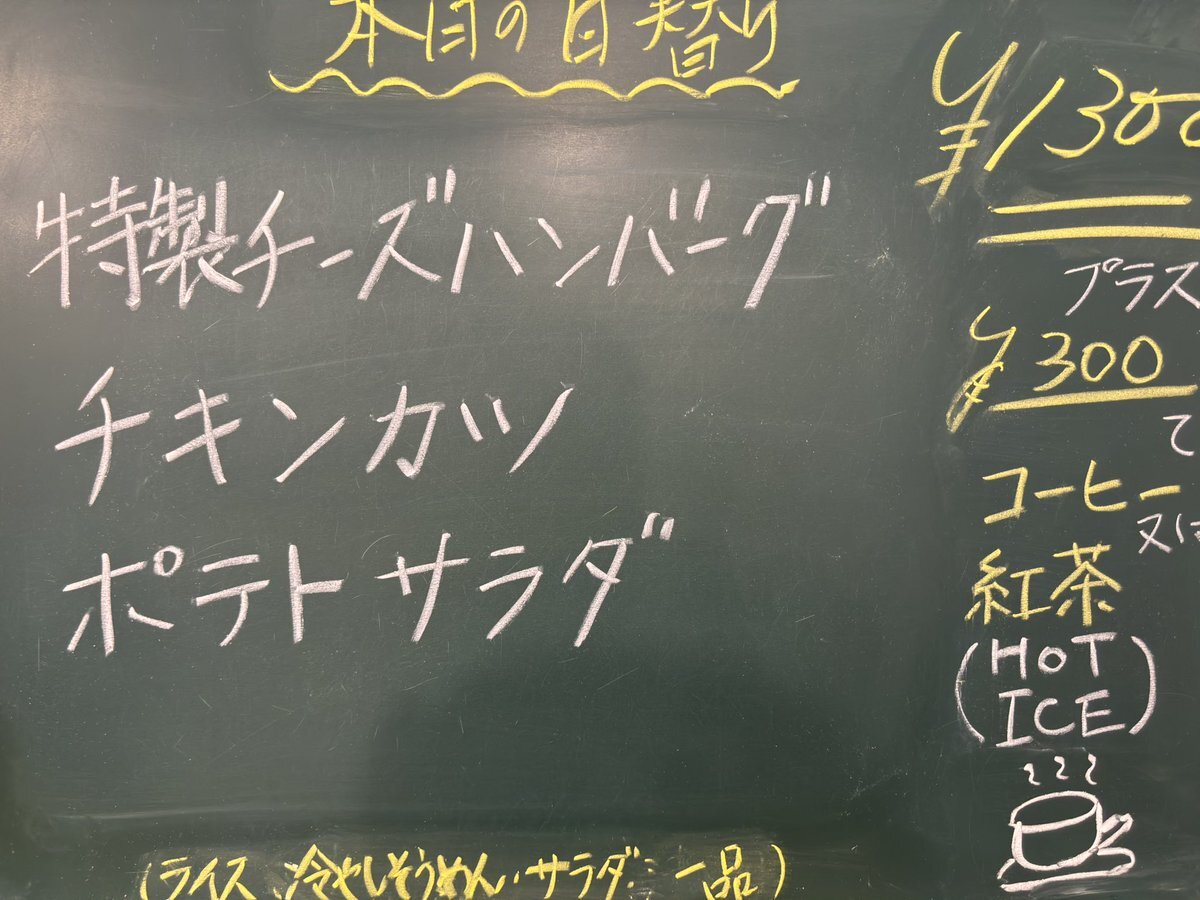 本日の日替り
特製チーズハンバーグ
チキンカツ
ポテトサラダ
(ライス、冷やしそうめん、サラダ、一品)
¥1300
プラス
¥300
で
コーヒー
又は
紅茶
(HOT
ICE)